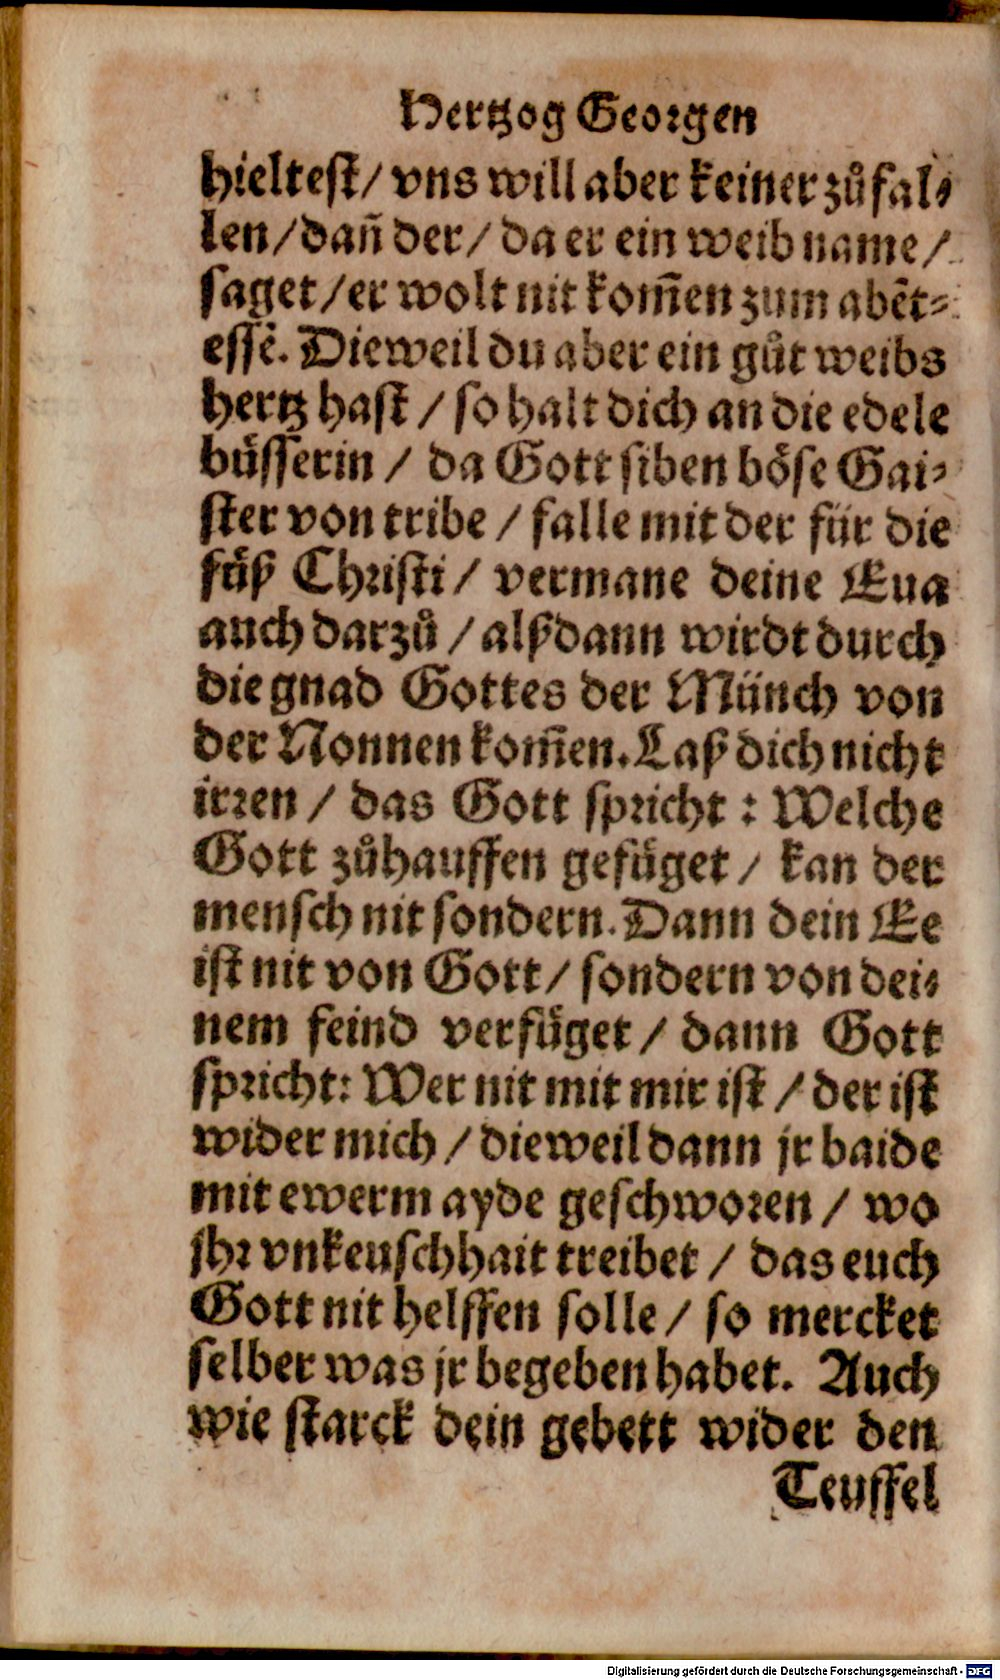 Hertzog Georgen
hieltest/ vns will aber keiner zůfal⸗
len/dañ der/ da er ein weib name/
saget/er wolt nit kom̃en zum abẽt⸗
essẽ. Dieweil du aber ein gůt weibs
hertz hast / so halt dich an die edele
bůsserin / da Gott siben böse Gai⸗
ster von tribe / falle mit der für die
fůß Christi / vermane deine Eua
auch darzů / alßdann wirdt durch
die gnad Gottes der Münch von
der Nonnen kom̃en. Laß dich nicht
irren / das Gott spricht : Welche
Gott zůhauffen gefüget / kan der
mensch nit sondern. Dann dein Ee
ist nit von Gott / sondern von dei⸗
nem feind verfüget / dann Gott
spricht: Wer nit mit mir ist / der ist
wider mich / dieweil dann jr baide
mit ewerm ayde geschworen / wo
jhr vnkeuschhait treibet / das euch
Gott nit helffen solle / so mercket
selber was jr begeben habet. Auch
wie starck dein gebett wider den
Teuffel
Digitalisierung gefördert durch die Deutsche Forschungsgemeinschaft - DFG